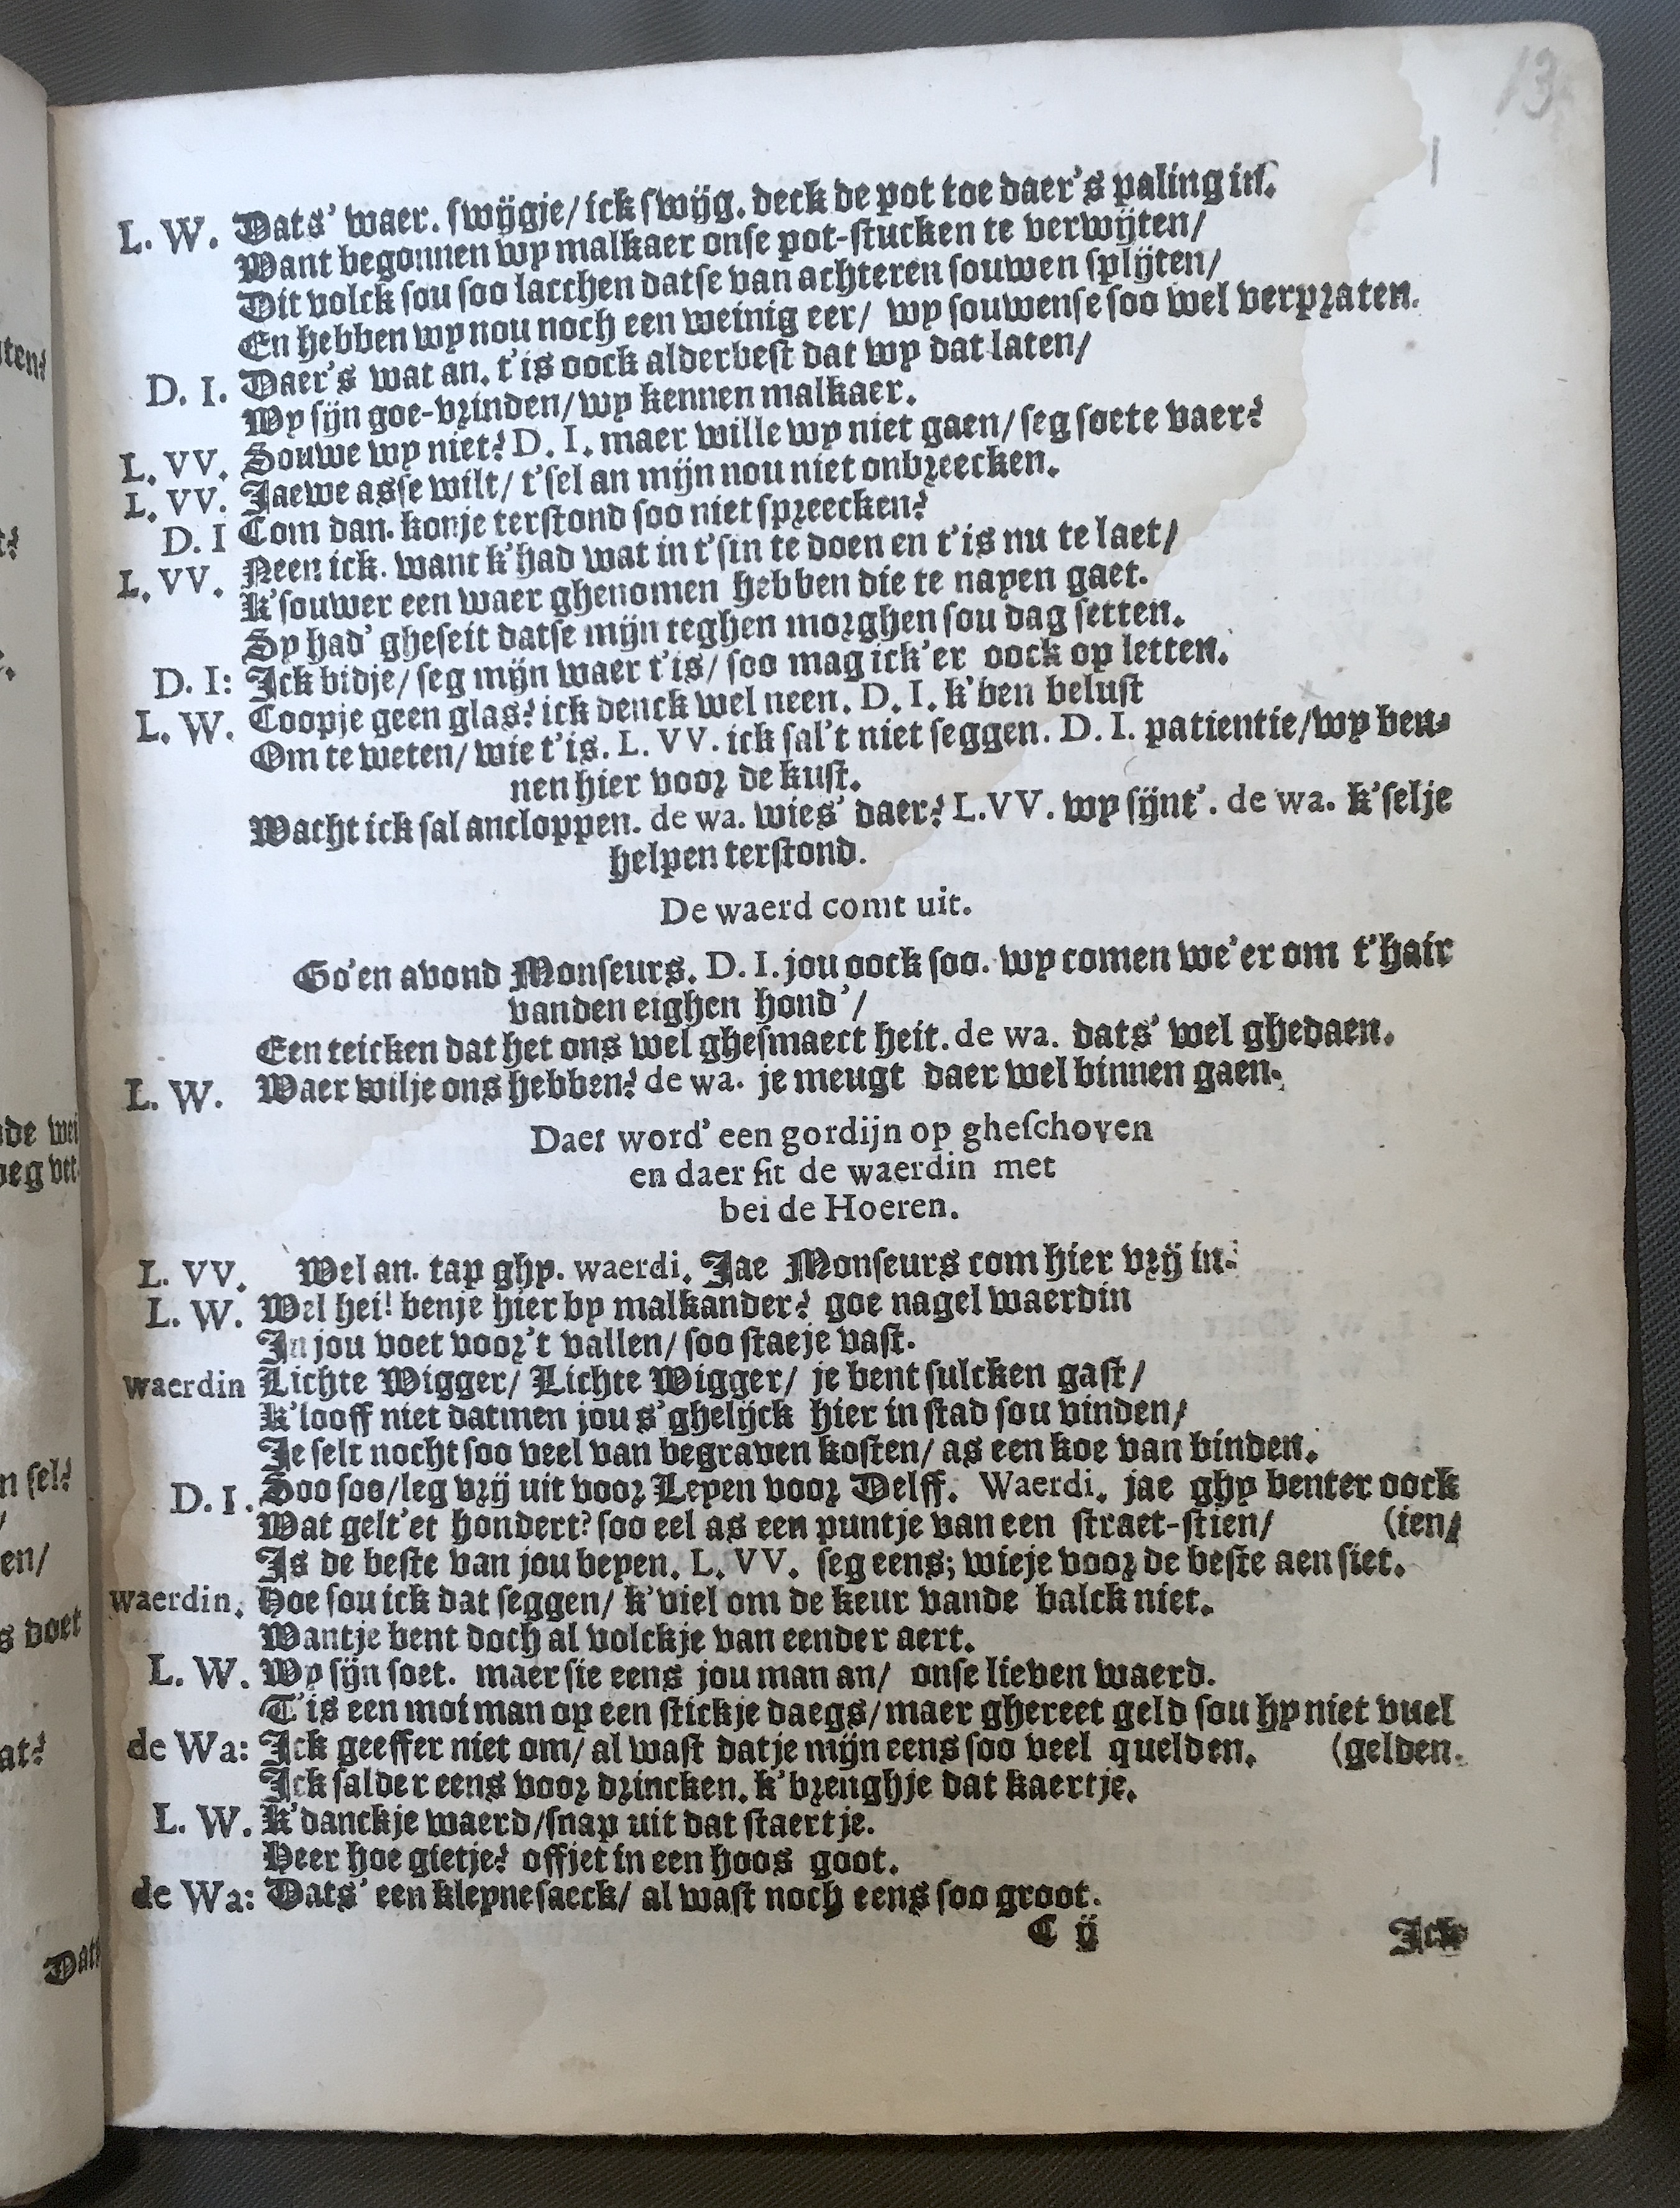 13
L. W. Dats' waer. swijgje/ ick swijg. deck de pot toe daer's paling in.
Want begonnen wy malkaer onse pot-stucken te verwijten/
Dit volck sou soo lacchen datse van achteren souwen splijten/
En hebben wy nou noch een weinig eer/ wy souwense soo wel verpraten.
D. I. Daer's wat an. t'is oock alderbest dat wy dat laten/
Wy sijn goe-vrinden/ wy kennen malkaer.
L. VV. Souwe wy niet? D. I. maer wille wy niet gaen/ seg soete vaer?
L. VV. Jaewe asse wilt/ t'sel an mijn nou niet onbreecken.
D. I Com dan. konje terstond soo niet spreecken?
L. VV. Neen ick. want k'had wat in t'sin te doen en t'is nu te laet/
k'souwer een waer ghenomen hebben die te nayen gaet.
Sy had' gheseit datse mijn teghen morghen sou dag setten.
D. I: Ick bidje/ seg mijn waer t'is/ soo mag ick'er oock op letten.
L. W. Coopje geen glas? ick denck wel neen. D. I. k'ben belust
Om te weten/ wie t'is. L. VV. ick sal't niet seggen. D. I. patientie/ wy ben-
nen hier voor de kust.
Wacht ick sal ancloppen. de wa. wies' daer? L.VV. wy sijnt'. de wa. k'selje
helpen terstond.
De waerd comt uit.
Go'en avond Monseurs. D. I. jou oock soo. wy comen we'er om t'hair
vanden eighen hond'/
Een teicken dat het ons wel ghesmaect heit. de wa. dats' wel ghedaen.
L. W. Waer wilje ons hebben? de wa. je meugt daer wel binnen gaen.
Daer word' een gordijn op gheschoven
en daer sit de waerdin met
bei de Hoeren.
L. VV. Wel an. tap ghy. waerdi. Jae Monseurs com hier vrij in.
L. W. Wel hei! benje hier by malkander? goe nagel waerdin
In jou voet voor't vallen/ soo staeje vast.
waerdin Lichte Wigger/ Lichte Wigger/ je bent sulcken gast/
k'looff niet datmen jou s'ghelijck hier in stad sou vinden/
Je selt nocht soo veel van begraven kosten/ as een koe van binden.
D. I. Soo soo/ leg vrij uit voor Leyen voor Delff. Waerdi. jae ghy benter oock
Wat gelt'et hondert? soo eel as een puntje van een straet-stien/ (ien/
Is de beste van jou beyen. L. VV. seg eens; wieje voor de beste aen siet.
waerdin. Hoe sou ick dat seggen/ k'viel om de keur vande balck niet.
Wantje bent doch al volckje van eender aert.
L. W. Wy sijn soet. maer sie eens jou man an/ onse lieven waerd.
T'is een moi man op een stickje daegs/ maer ghereet geld sou hy niet vuel
de Wa: Ick geeffer niet om/ al wast datje mijn eens soo veel quelden. (gelden.
Ick salder eens voor drincken. k'brenghje dat kaertje.
L. W. K'danckje waerd/ snap uit dat staertje.
Heer hoe gietje? offjet in een hoos goot.
de Wa: Dats' een kleynesaeck/ al wast noch eens soo groot.
C ij Ick